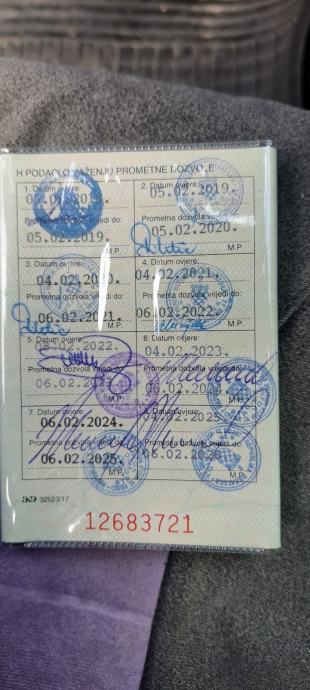 H PODACI O VAŽENJU PROMETNE DOZVOLE
1. Datum ovjere:
Prometna dozvola vrijedi do:
05.02.2019.
M.P.
2. Datum ovjere:
05.02.2019.
Prometna dozvola vrijedi do:
05.02.2020.
M.P.
3. Datum ovjere:
04.02.2020.
Prometna dozvola vrijedi do:
06.02.2021.
M.P.
4. Datum ovjere:
04.02.2021.
Prometna dozvola vrijedi do:
06.02.2022.
M.P.
5. Datum ovjere:
Prometna dozvola vrijedi do:
06.02.2023.
M.P.
6. Datum ovjere:
04.02.2023.
Prometna dozvola vrijedi do:
06.02.2024.
M.P.
7. Datum ovjere:
06.02.2024.
Prometna dozvola vrijedi do:
06.02.2025.
M.P.
Datum ovjere:
Prometna dozvola vrijedi do:
M.P.
32023/17
12683721